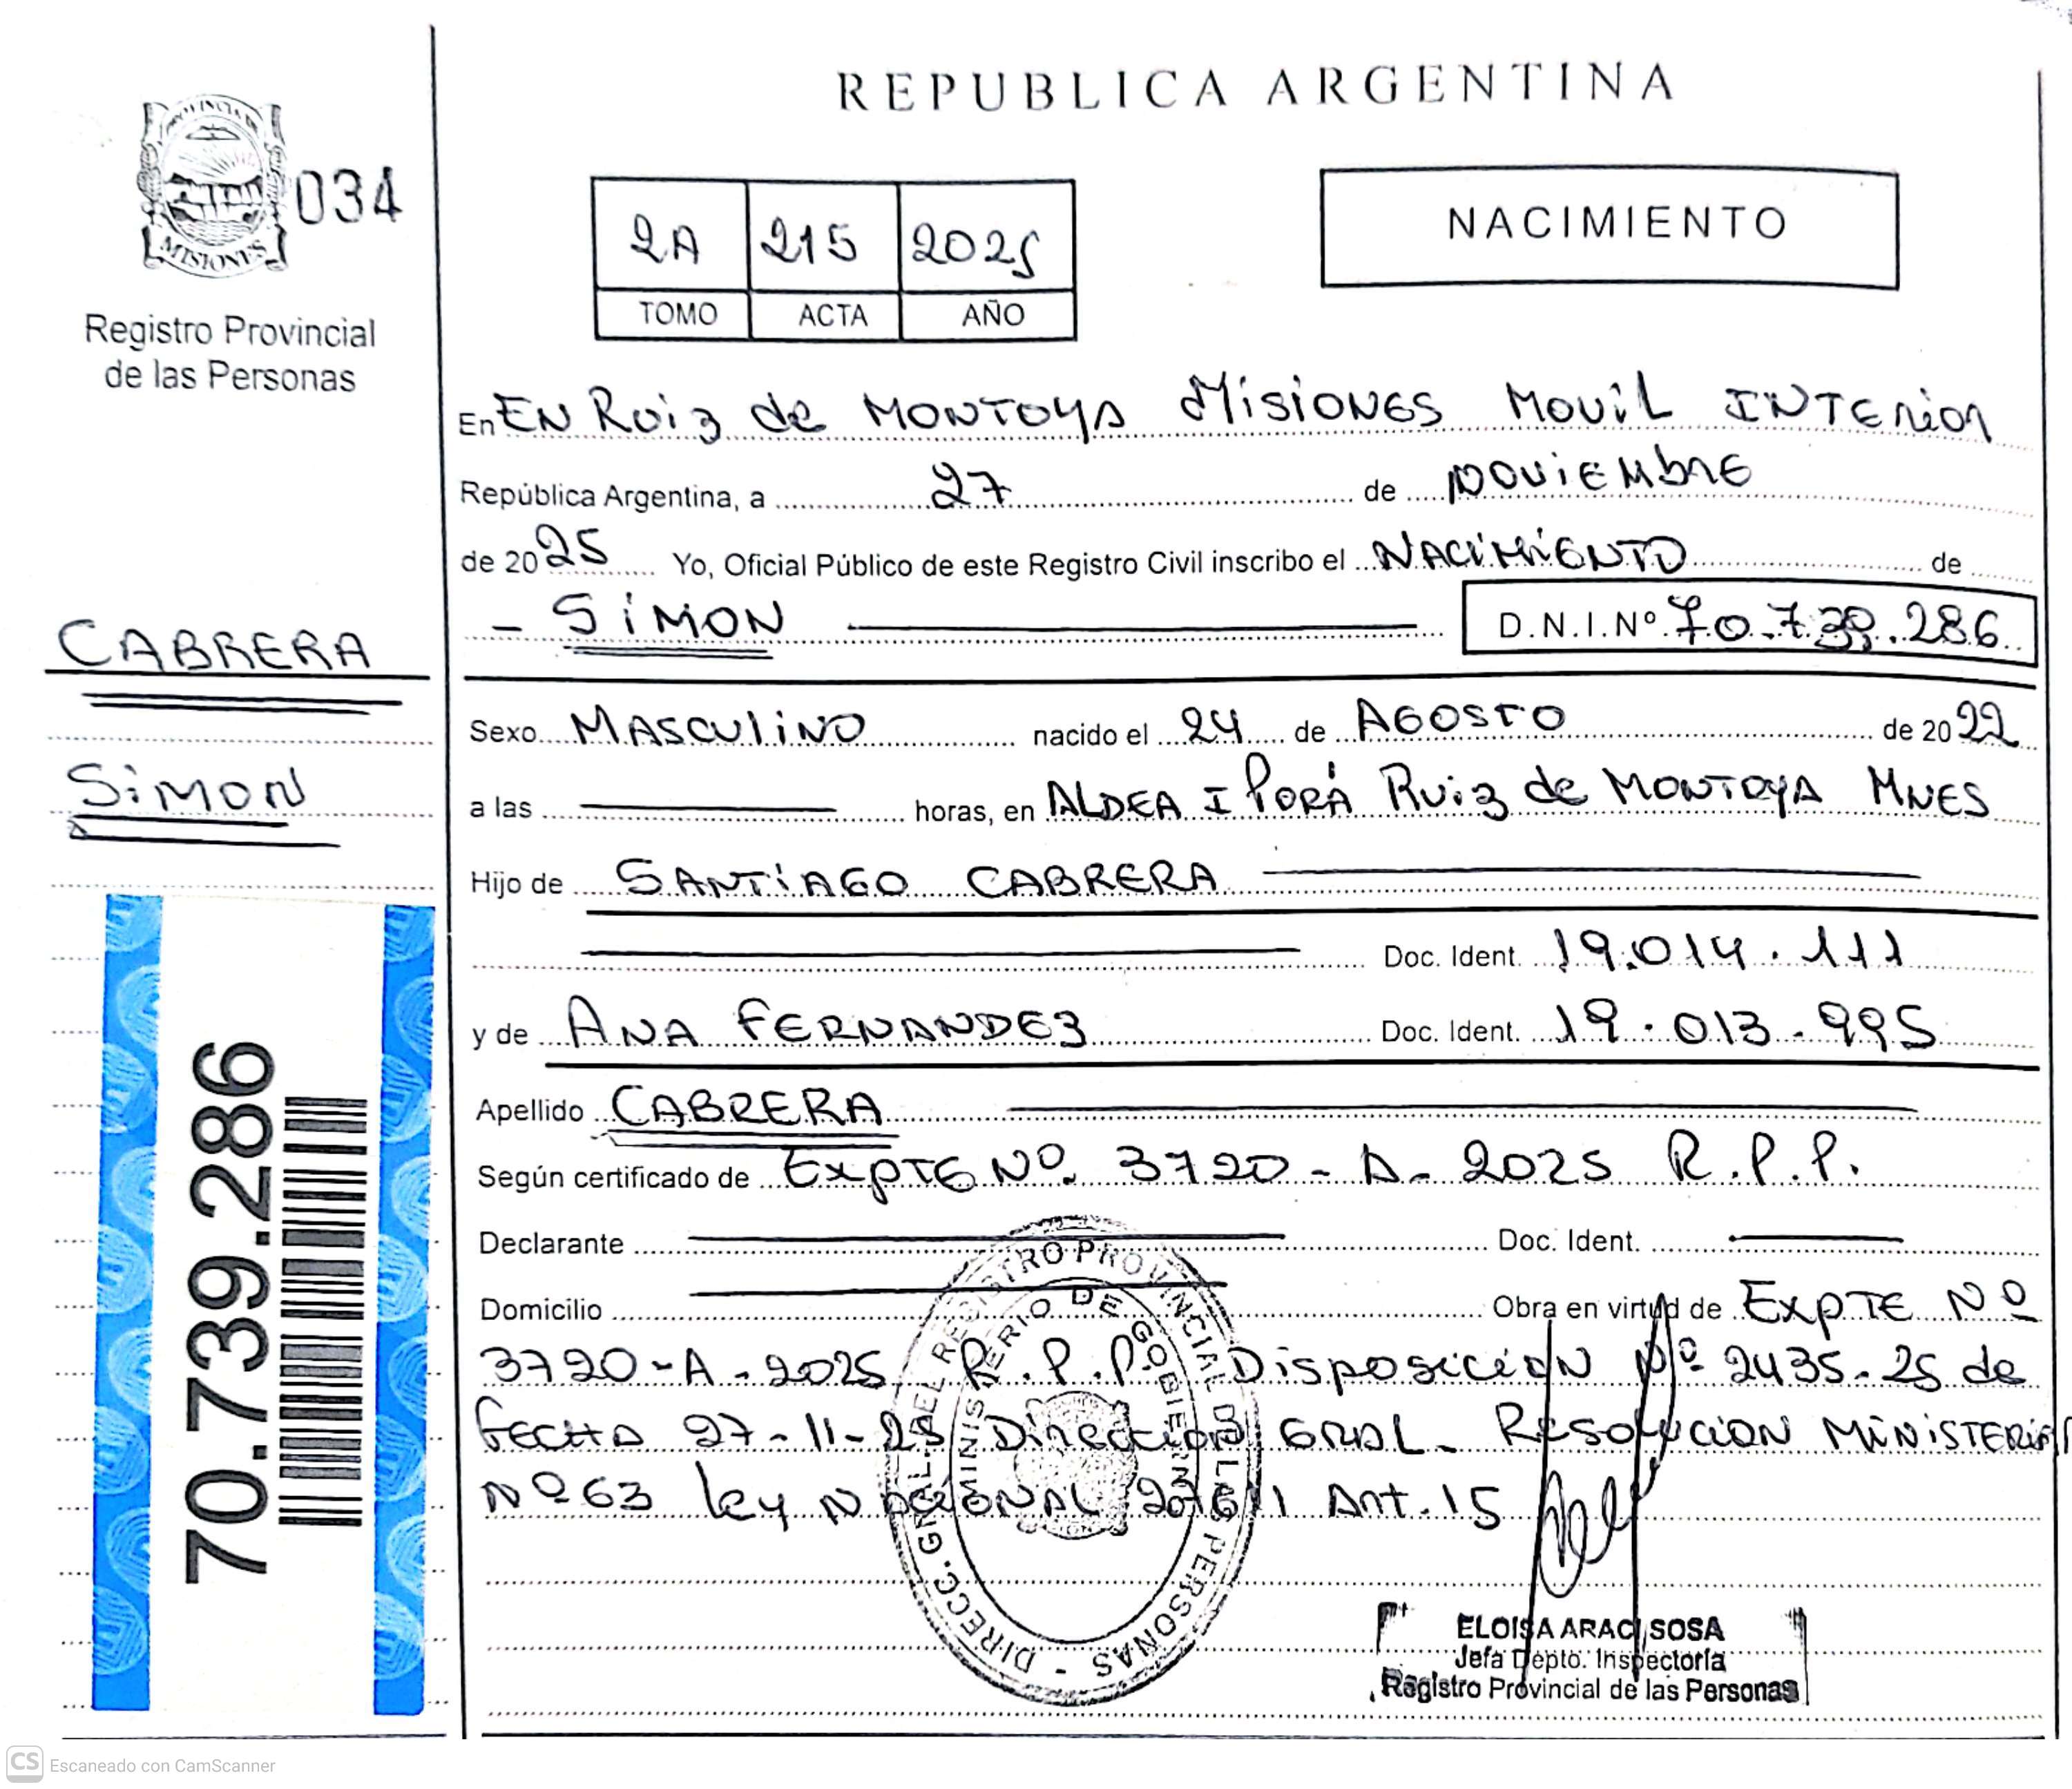 REPUBLICA ARGENTINA
PROVINCIA DE
MISIONES
034
Registro Provincial
de las Personas
2A 215 2025
TOMO ACTA AÑO
NACIMIENTO
En EN Ruiz de MONTOYA MisioNES MoviL INTERior
República Argentina, a 27 de NOviEMbRE
de 2025 Yo, Oficial Público de este Registro Civil inscribo el NACiMiENTO de
- SiMON D.N.I.Nº 70.739.286
CABRERA
SiMON
Sexo MASCuliNO nacido el 24 de AGOSTO de 2022
a las horas, en ALDEA I PORÁ Ruiz de MONTOYA MNES
Hijo de SANTiAGO CABRERA
Doc. Ident. 19.014.111
y de ANA FERNANDEz Doc. Ident. 19.013.995
Apellido CABRERA
Según certificado de ExpTE Nº 3720-A-2025 R.P.P.
Declarante Doc. Ident.
Domicilio Obra en virtud de ExpTE Nº
3720-A-2025 R.P.P. Disposición Nº 2435-25 de
fECHA 27-11-25 Dirección GRAL- RESolución MiNiSTERiAl
Nº 63 Ley NACiONAL Art.15
70.739.286
DIRECC. GRAL. DEL REGISTRO PROVINCIAL DE LAS PERSONAS -
MINISTERIO DE GOBIERNO
ELOISA ARACI SOSA
Jefa Depto. Inspectoría
Registro Provincial de las Personas
CS Escaneado con CamScanner